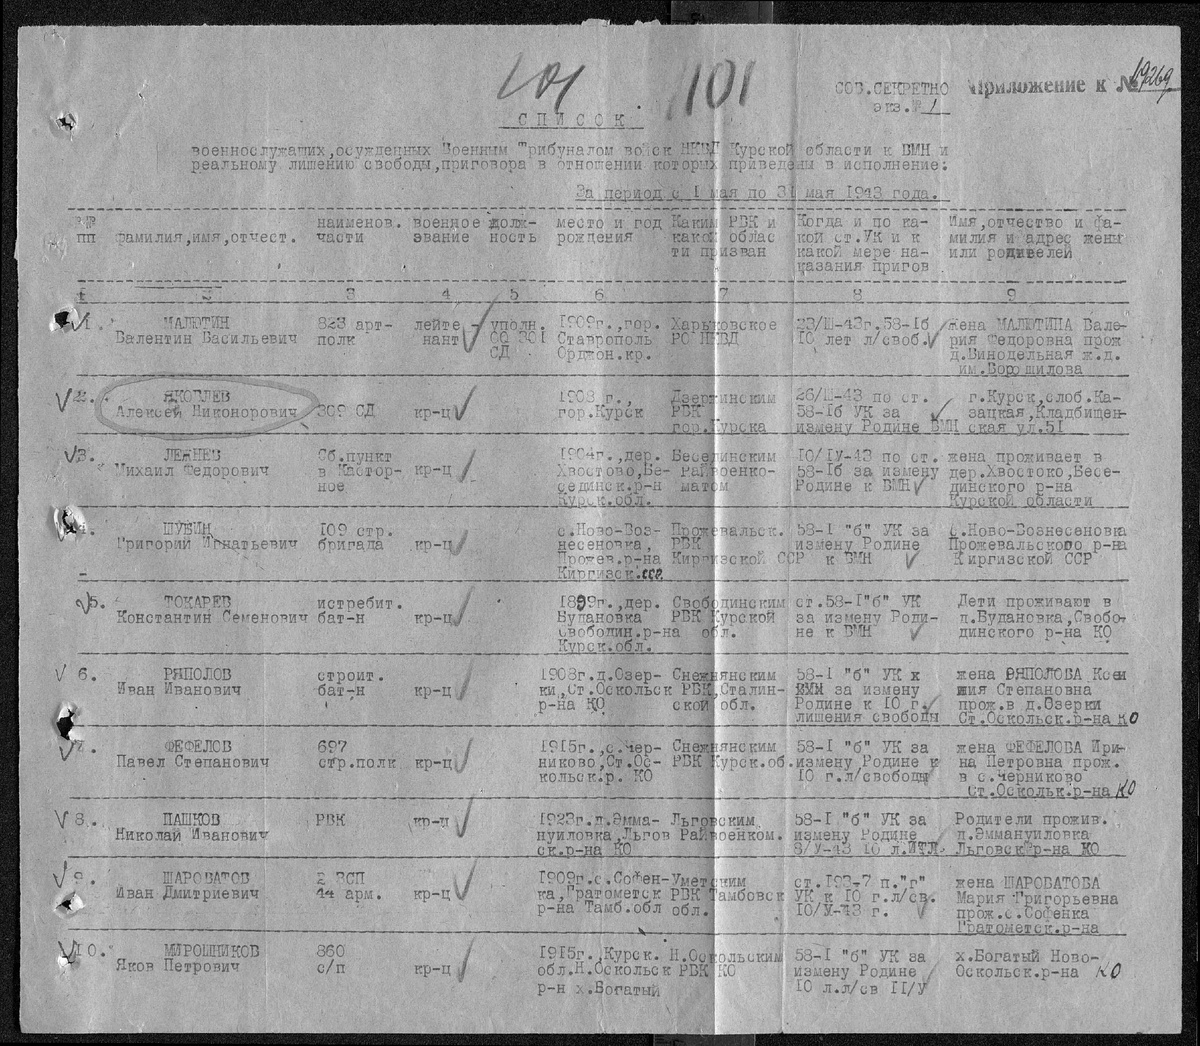 101 101
СОВ.СЕКРЕТНО
экз.№ 1
Приложение к № 19269
СПИСОК
военнослужащих,осужденных Военным Трибуналом войск НКВД Курской области к ВМН и
реальному лишению свободы,приговора в отношении которых приведены в исполнение:
За период с 1 мая по 31 мая 1943 года.
№№ пп
фамилия,имя,отчест.
наименов. части
военное звание
долж-
ность
место и год
рождения
Каким РВК и
какой облас
ти призван
Когда и по ка-
кой ст.УК и к
какой мере на-
казания пригов
Имя,отчество и фа-
милия и адрес жены
или родителей
1 2 3 4 5 6 7 8 9
1. МАЛЮТИН
Валентин Васильевич
823 арт-
полк
лейте-
нант
уполн.
СО 301
СД
1909г.,гор.
Ставрополь
Орджон.кр.
Харьковское
РО НКВД
23/Ш-43г.58-1б
10 лет л/своб.
жена МАЛЮТИНА Вале-
рия Федоровна прож
д.Винодельная ж.д.
им.Ворошилова
2. ЯКОВЛЕВ
Алексей Никонорович
309 СД
кр-ц
1903 г.,
гор.Курск
Дзержинским
РВК
гор.Курска
26/Ш-43 по ст.
58-1б УК за
измену Родине ВМН
г.Курск,слоб.Ка-
зацкая,Кладбищен-
ская ул.51
3. ЛЕЖНЕВ
Михаил Федорович
Сб.пункт
в Кастор-
ное
кр-ц
1904г.,дер.
Хвостово,Бе-
сединск.р-н
Курск.обл.
Беседским
Райвоенко-
матом
10/IУ-43 по ст.
58-1б за измену
Родине к ВМН
жена проживает в
дер.Хвостоко,Бесе-
динского р-на
Курской области
4. ШУБИН
Григорий Игнатьевич
109 стр.
бригада
кр-ц
с.Ново-Воз-
несеновка,
Прожев.р-на
Киргизск.ССР.
Прожевальск.
РВК
Киргизской ССР
58-1 "б" УК за
измену Родине
к ВМН
с.Ново-Вознесеновка
Прожевальского р-на
Киргизской ССР
5. ТОКАРЕВ
Константин Семенович
истребит.
бат-н
кр-ц
1899г.,дер.
Будановка
Свободин.р-на
Курск.обл.
Свободинским
РВК Курской
обл.
ст.58-1"б" УК
за измену Роди-
не к ВМН
Дети проживают в
д.Будановка,Свобо-
динского р-на КО
6. РЯПОЛОВ
Иван Иванович
строит.
бат-н
кр-ц
1903г.д.Озер-
ки,Ст.Оскольск
р-на КО
Снежнянским
РВК,Сталин-
ской обл.
58-1 "б" УК х
ВМН за измену
Родине к 10 г.
лишения свободы
жена РЯПОЛОВА Ксен
ия Степановна
прож.в д.Озерки
Ст.Оскольск.р-на КО
7. ФЕФЕЛОВ
Павел Степанович
697
стр.полк
кр-ц
1915г.,с.Чер-
никово,Ст.Ос-
кольск.р. КО
Снежнянским
РВК Курск.об.
58-1 "б" УК за
измену Родине к
10 г.л/свободы
жена ФЕФЕЛОВА Ири-
на Петровна прож.
в с.Черниково
Ст.Оскольк.р-на КО
8. ПАШКОВ
Николай Иванович
РВК
кр-ц
1923г.д.Эмма-
нуиловка,Льгов
ск.р-на КО
Льговским
Райвоенком.
58-1 "б" УК за
измену Родине
8/У-43 10 л.ИТЛ
Родители прожив.
д.Эммануиловка
Льговск.р-на КО
9. ШАРОВАТОВ
Иван Дмитриевич
2 ЗСП
44 арм.
кр-ц
1909г.с.Софен-
ка,Гратометск
р-на Тамб.обл
Уметским
РВК Тамбовск
обл.
ст.193-7 п."г"
УК к 10 г.л/св.
10/У-43 г.
жена ШАРОВАТОВА
Мария Григорьевна
прож.с.Софенка
Гратометск.р-на
10. МИРОШНИКОВ
Яков Петрович
860
с/п
кр-ц
1915г.,Курск.
обл.Н.Оскольск
р-н х.Богатый
Н.Оскольским
РВК КО
58-1 "б" УК за
измену Родине
10 л.л/св 11/У
х.Богатый Ново-
Оскольск.р-на КО